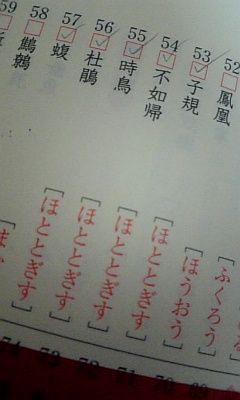 [ふくろう]
52 鳳凰 [ほうおう]
53 子規 [ほととぎす]
54 不如帰 [ほととぎす]
55 時鳥 [ほととぎす]
56 杜鵑 [ほととぎす]
57 蝮
58 鷦鷯
59
70
71
72
73
74